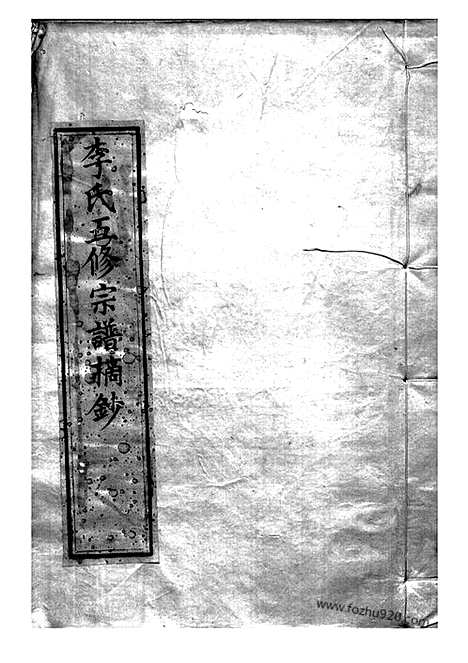 李氏再修宗譜摘鈔
www.fozhu920.com